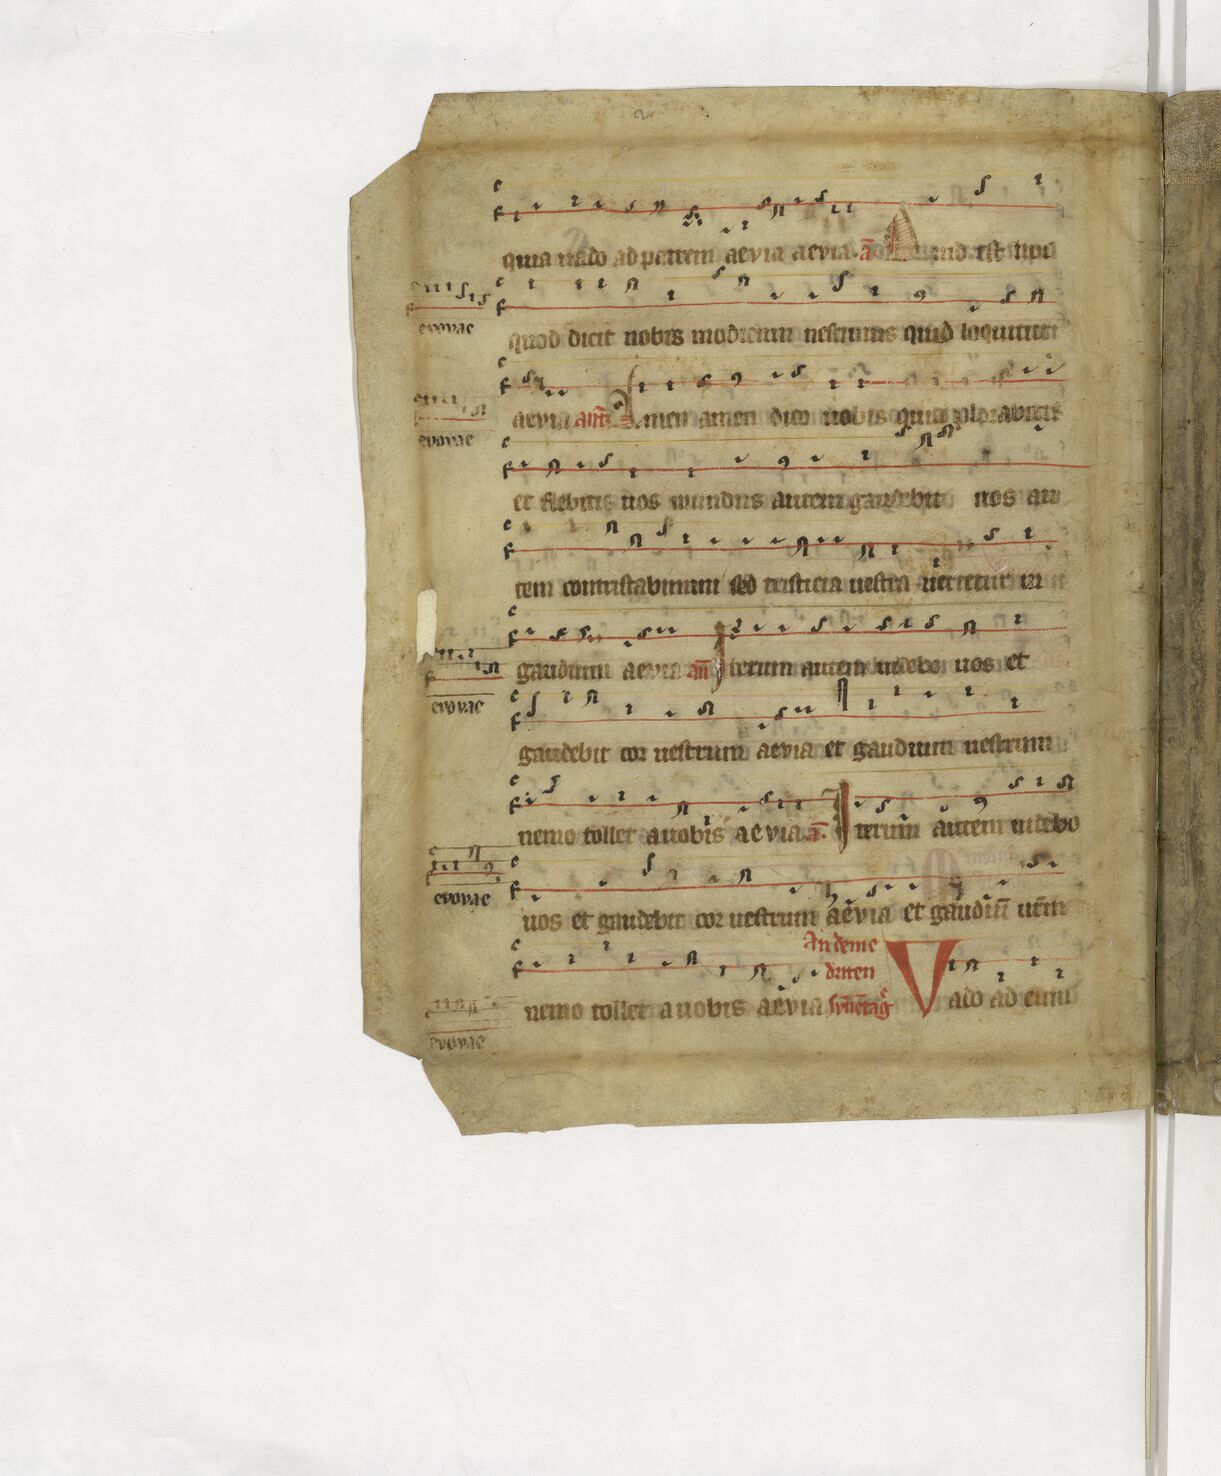 quia uado ad patrem aevia aevia. a Quid est hoc
quod dicit nobis modicum nescimus quid loquitur
evovae
aevia an Amen amen dico uobis quia plorabitis
evovae
et flebitis uos mundus autem gaudebit uos au
tem contristabimini sed tristicia uestra uertetur in
gaudium aevia an Iterum autem uidebo uos et
evovae
gaudebit cor uestrum aevia et gaudium uestrum
nemo tollet a uobis aevia. a. Iterum autem uidebo
evovae
uos et gaudebit cor uestrum aevia et gaudiu urm
nemo tollet a uobis aevia Vado ad eum
evovae